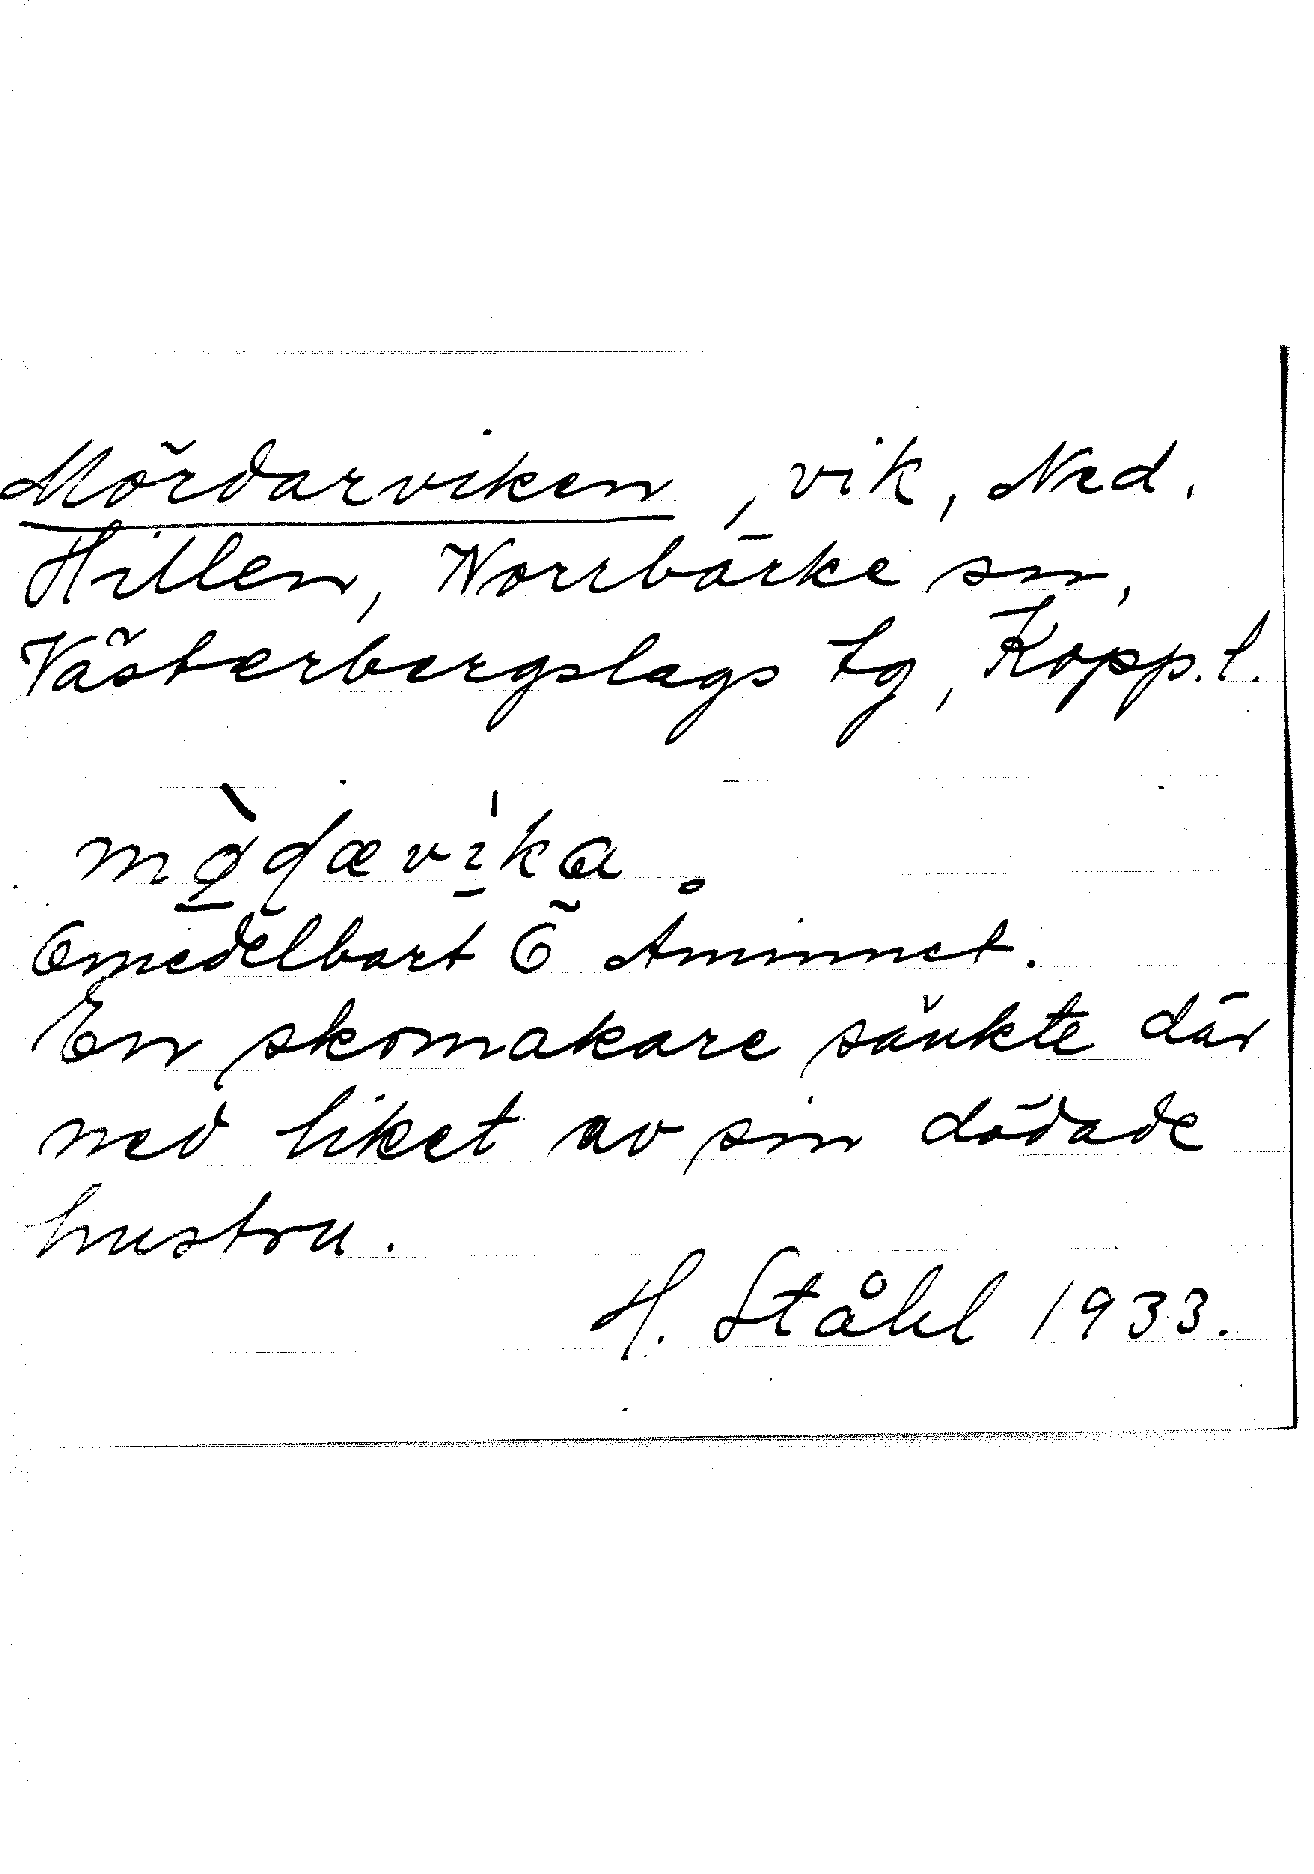 Mördarviken, vik, Ned.
Hillen, Norrbärke sn,
Västerbergslags tg, Kopp. l.
mø̀ɖævi̱ka.
Omedelbart Ö Åminnet.
En skomakare sänkte där
ned liket av sin dödade
hustru.
H. Ståhl 1933.